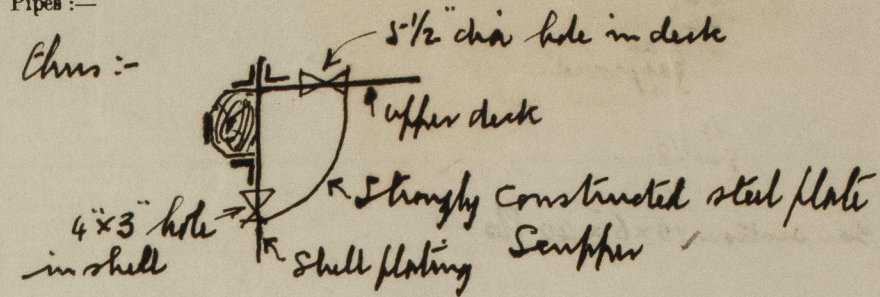 Pipes :—
5-1/2" dia hole in deck
Thus :-
upper deck
Strongly constructed steel plate
Scupper
4"x3" hole
in shell
Shell plating